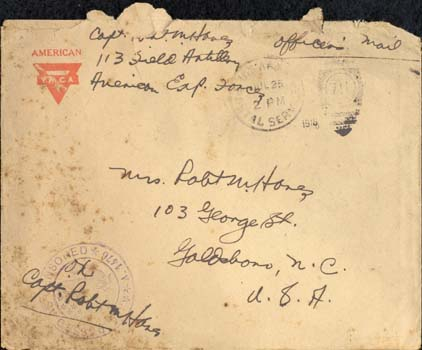 Capt. Robt M. Hanes
113 Field Artillery
American Exp. Forces
Officer's Mail
AMERICAN
Y.M.C.A.
JUL 25
2 PM
1918
711
Mrs. Robt M. Hanes
103 George St.
Goldsboro, N.C.
U.S.A.
A.E.F.
OK
Capt. Robt M Hanes